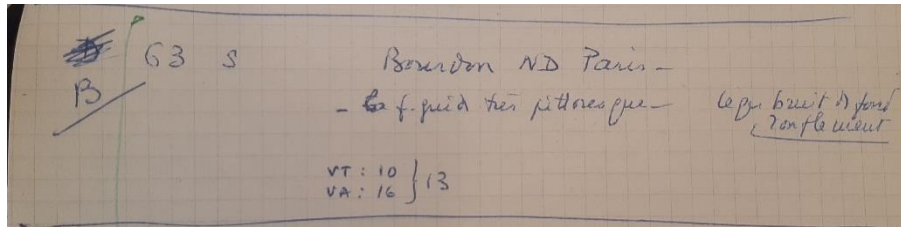 63 s Bourdon ND Paris -
B - f. guid très pittoresque - bruit de fond
ronflement
VT : 10 } 13
VA : 16